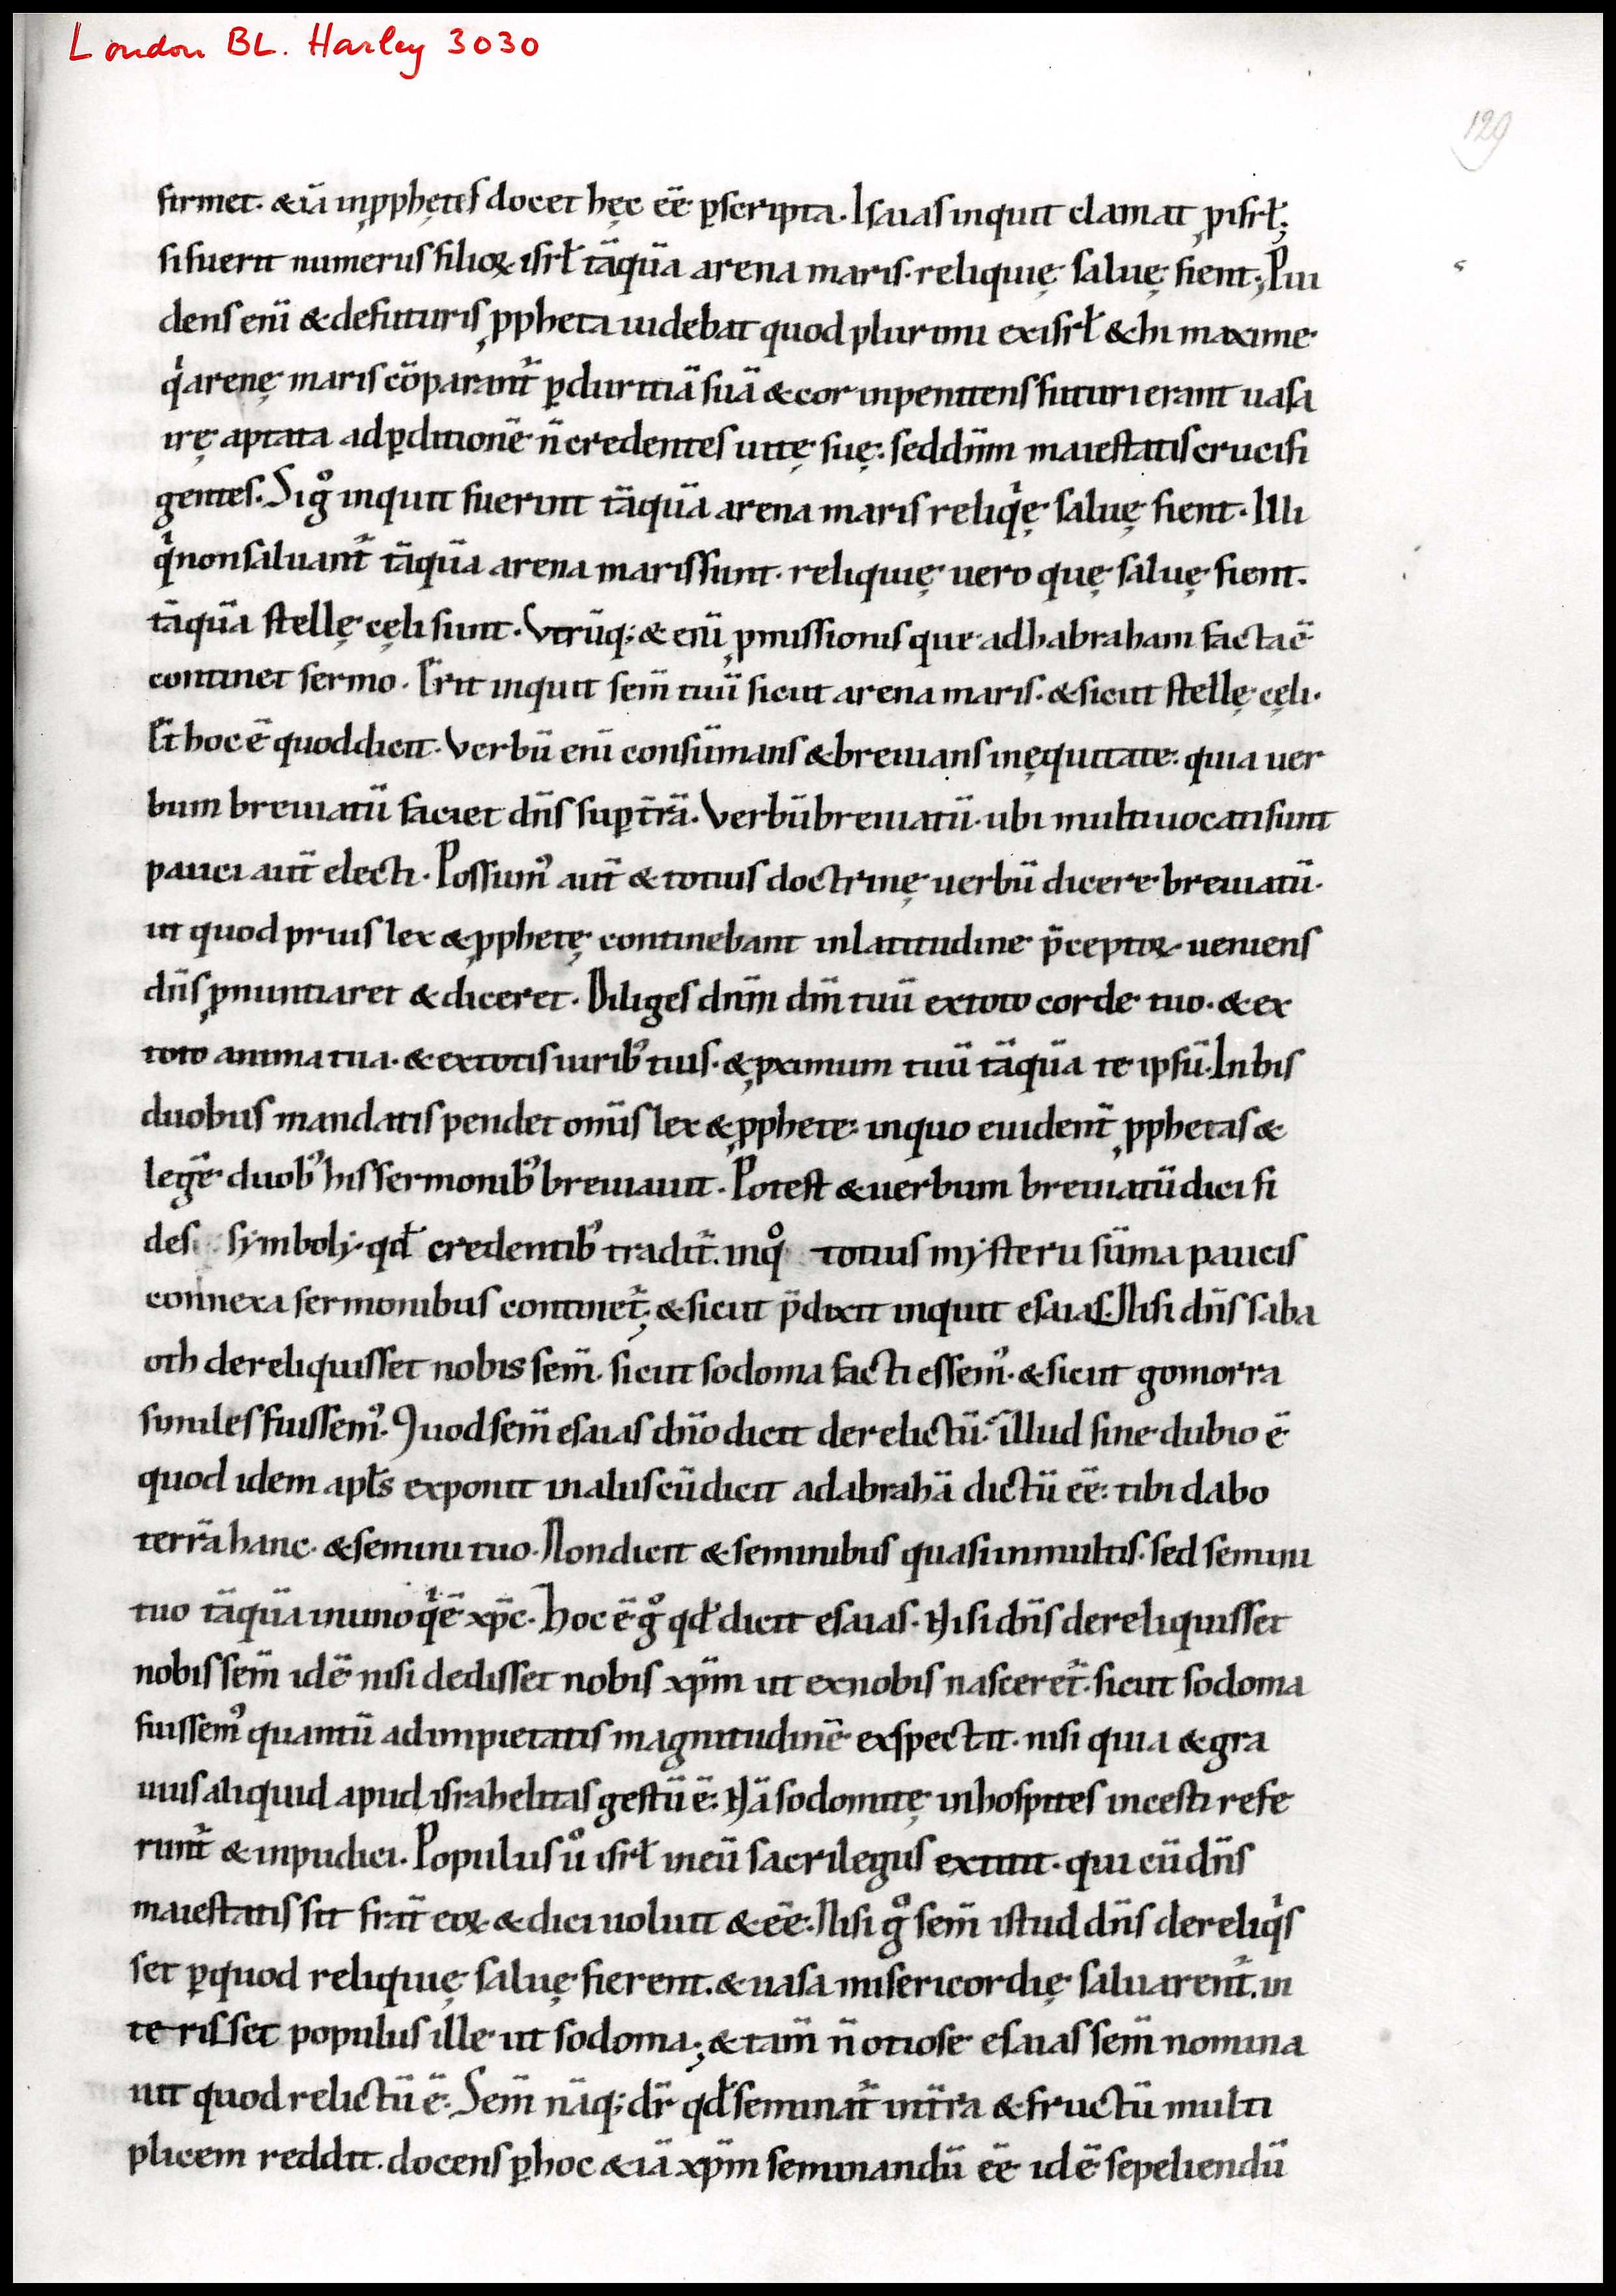 London BL. Harley 3030
129
firmet. &iā inꝓphęteſ docet hęc eē ꝑſcripta. Iſaiaſ inquit clamat ꝓiſrł;
ſi fuerit numeruſ filioꝝ iſrł tāquā arena mariſ. reliquię ſaluę fient; Ꝓui
denſ eni &defuturiſ ꝓpheta uidebat quod plurimi exiſrł &hi maxime
qͥarenę mariſ cōparant̄ ꝑduritiā ſuā &cor inpenitenſ futuri erant uaſa
irę aptata adꝑditionē n̄credenteſ uitę ſuę: ſeddn̄m maieſtatiſ crucifi
genteſ. Sigͦ inquit fuerint tāquā arena mariſ reliqͥę ſaluę fient. Illi
qͥnonſaluant̄ tāquā arena mariſſunt. reliquię uero quę ſaluę fient.
tāquā ſtellę cęli ſunt. Vtrūq; & enī ꝓmiſſioniſ que adhabraham factaē
continet ſermo. Erit inquit ſem̄ tuū ſicut arena mariſ. &ſicut ſtellę cęli.
Et hoc ē quoddicit. Verbū enī conſūmanſ &breuianſ inęquitate: quia uer
bum breuiatū faciet dn̄ſ ſuꝑ tr̄ā. Verbūbreuiatū. ubi multi uocatiſunt
pauci aut̄ electi. Poſſumꝰ aut̄ & totiuſ doctrinę uerbū dicere breuiatū.
ut quod priuſ lex &ꝓphetę continebant inlatitudine p̄ceptoꝝ uenienſ
dn̄ſ ꝓnuntiaret &diceret. Diligeſ dn̄m dm̄ tuū extoto corde tuo. &ex
toto anima tua. &extotiſ uiribꝰ tuiſ. &ꝓximum tuū tāquā te ipſū. In hiſ
duobuſ mandatiſ pendet omīſ lex &ꝓphete: inquo euident̄ ꝓphetaſ &
legē duobꝰ hiſ ſermonibꝰ breuiauit. Poteſt &uerbum breuiatū dici fi
deſ ſymboli. qđ credentibꝰ tradit̄. inqͦ totiuſ myſterii ſūma pauciſ
connexa ſermonibuſ continet̄; &ſicut p̄dixit inquit eſaiaſ. Niſi dn̄ſ ſaba
oth dereliquiſſet nobiſ ſem̄. ſicut ſodoma facti eſſemꝰ. &ſicut gomorra
ſimileſ fuiſſemꝰ. Quod ſem̄ eſaiaſ dn̄o dicit derelictū. illud ſine dubio ē
quod idem apłs exponit inaliiſ cūdicit adabrahā dictū eē: tibi dabo
terrā hanc. &ſemini tuo. Non dicit & ſeminibuſ quaſi inmultiſ. ſed ſemini
tuo tāquā inuno qͥē xp̄c. Hoc ē gͦ qđ dicit eſaiaſ. Niſi dn̄ſ dereliquiſſet
nobiſ ſem̄ idē niſi dediſſet nobiſ xp̄m ut exnobiſ naſceret̄. ſicut ſodoma
fuiſſemꝰ quantū ad impietatiſ magnitudinē exſpectit. niſi quia &gra
uiuſ aliquid apud iſrahelitaſ geſtū ē. Nā ſodomitę inhoſpiteſ inceſti refe
runt̄ & inpudici. Populuſ uͦ iſrł ineū ſacrileguſ extitit. qui cū dn̄ſ
maieſtatiſ ſit frat̄ eoꝝ & dici uoluit & eē. Niſi gͦ ſem̄ iſtud dn̄ſ dereliqͥſ
ſet ꝑquod reliquię ſaluę fierent. & uaſa miſericordię ſaluarent̄. in
teriſſet populuſ ille ut ſodoma; &tam̄ n̄ otioſe eſaiaſ ſem̄ nomina
uit quod relictū ē. Sem̄ nāq; dr̄ qđ ſeminat̄ int̄ra &fructū multi
plicem reddit. docenſ ꝑhoc &iā xp̄m ſeminandū eē idē ſepeliendū